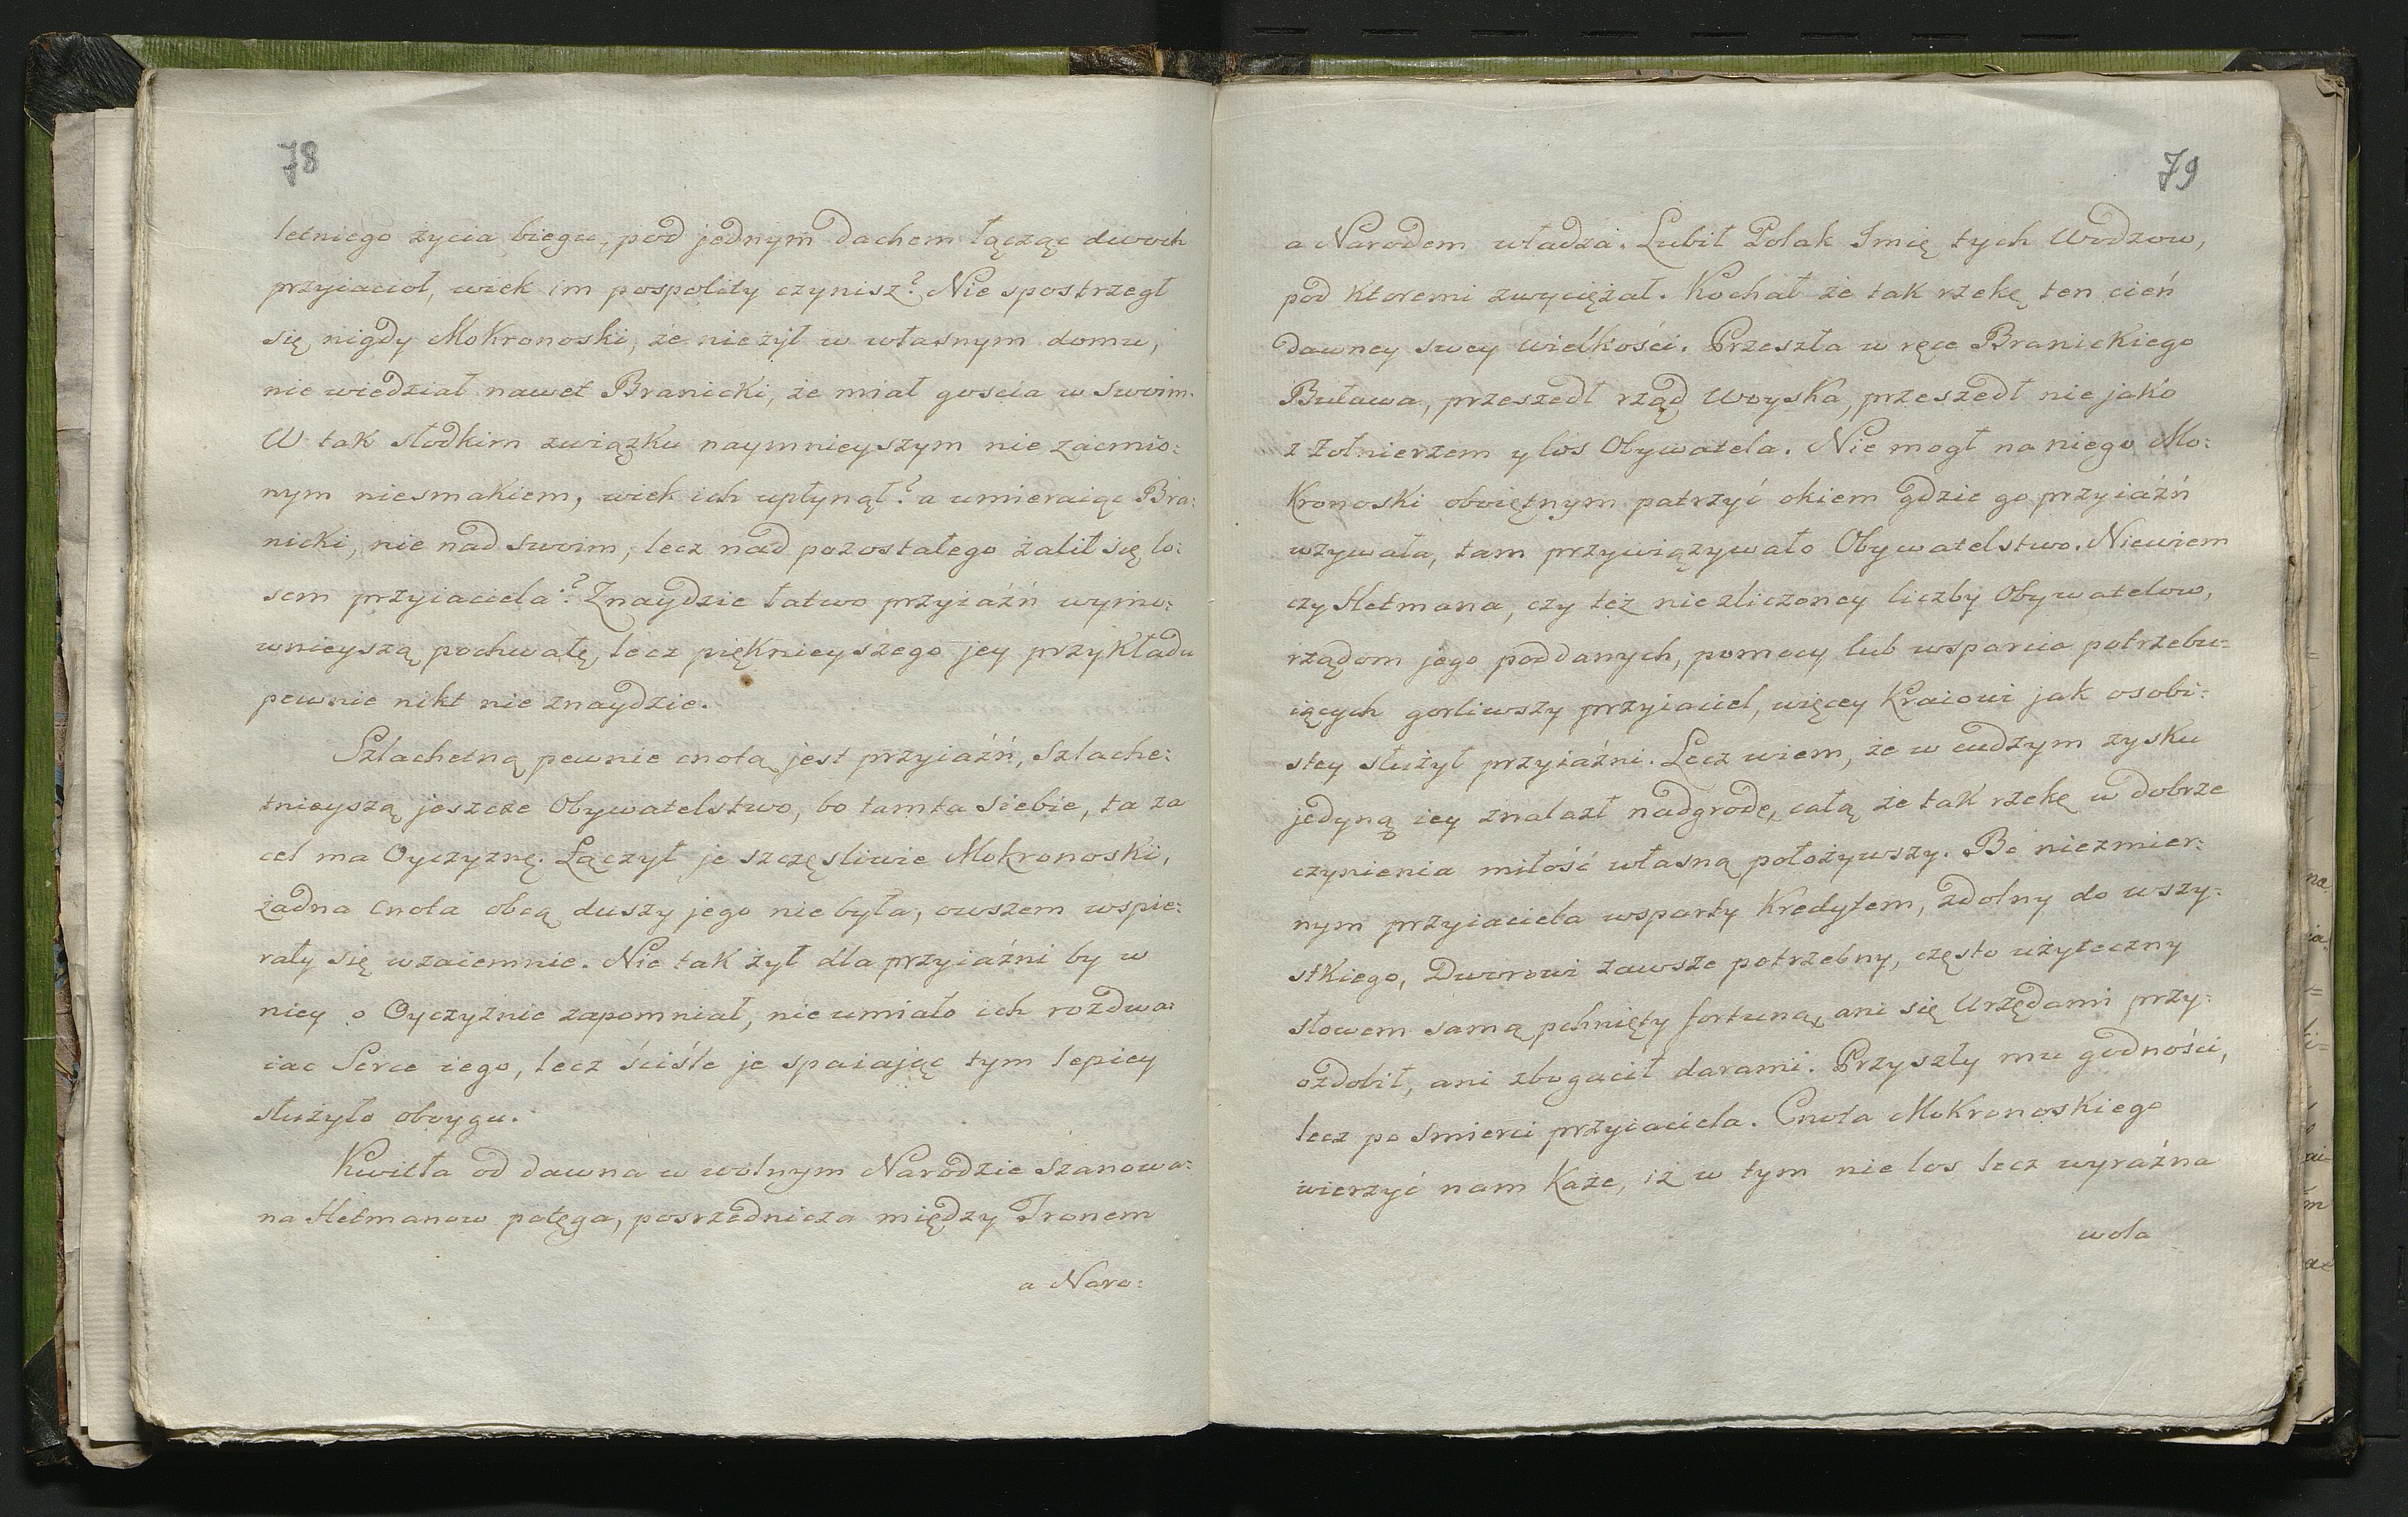 78
letniego zycia biegu, pod jednym dachem łącząc dwoch
przyiacioł, wiek im pospolity czynisz? Nie spostrzegł
się nigdy Mokronoski, że nie żył w własnym domu,
nie wiedział nawet Branicki, że miał goscia w swoim.
W tak słodkim związku naymnieyszym nie zacmio:
nym niesmakiem, wiek ich upłynął? a umieraiąc Bra:
nicki, nie nad swoim, lecz nad pozostałego żalił się lo:
sem przyiaciela? Znaydzie łatwo przyiaźń wymo:
wnieyszą pochwałę, lecz pięknieyszego jey przykładu
pewnie nikt nie znaydzie.
Szlachetną pewnie cnotą jest przyiaźń, Szlache:
tnieyszą jeszcze Obywatelstwo, bo tamta siebie, ta za
cel ma Oyczyznę. Łączył je szczęsliwie Mokronoski,
żadna Cnota obcą duszy jego nie była, owszem wspie:
rały się wzaiemnie. Nie tak żył dla przyiaźni by w
niey o Oyczyznie zapomniał, nie umiało ich rozdwa:
iac Serce iego, lecz ściśle je spaiając tym lepiey
służyło oboygu.
Kwitła od dawna w wolnym Narodzie Szanowa:
na Hetmanow potęga, posrzednicza między Tronem
a Naro:
79
a Narodem władza. Lubił Polak Imię tych Wodzow,
pod ktoremi zwyciężał. Kochał że tak rzekę ten cień
dawney swey wielkości. Przeszła w ręce Branickiego
Buława, przeszedł rząd Woyska, przeszedł nie jako
z Zołnierzem y los Obywatela. Nie mogł na niego Mo:
kronoski oboiętnym patrzyć okiem gdzie go przyiaźń
wzywała, tam przywiązywało Obywatelstwo. Niewiem
czy Hetmana, czy też niezliczoney liczby Obywatelow,
rządom jego poddanych, pomocy lub wsparcia potrzebu:
iących gorliwszy przyiaciel, więcey Kraiowi jak osobi:
stey służył przyiaźni. Lecz wiem, że w cudzym zysku
jedyną iey znalazł nadgrodę, całą że tak rzekę w dobrze
czynienia miłość własną położywszy. Bo niezmier:
nym przyiaciela wsparty Kredytem, zdolny do wszy:
stkiego, Dworowi zawsze potrzebny, często użyteczny
słowem samą pchnięty fortuną, ani się Urzędami przy:
ozdobił, ani zbogacił darami. Przyszły mu godności,
lecz po smierci przyiaciela. Cnota Mokronoskiego
wierzyć nam każe, iż w tym nie los lecz wyraźna
wola